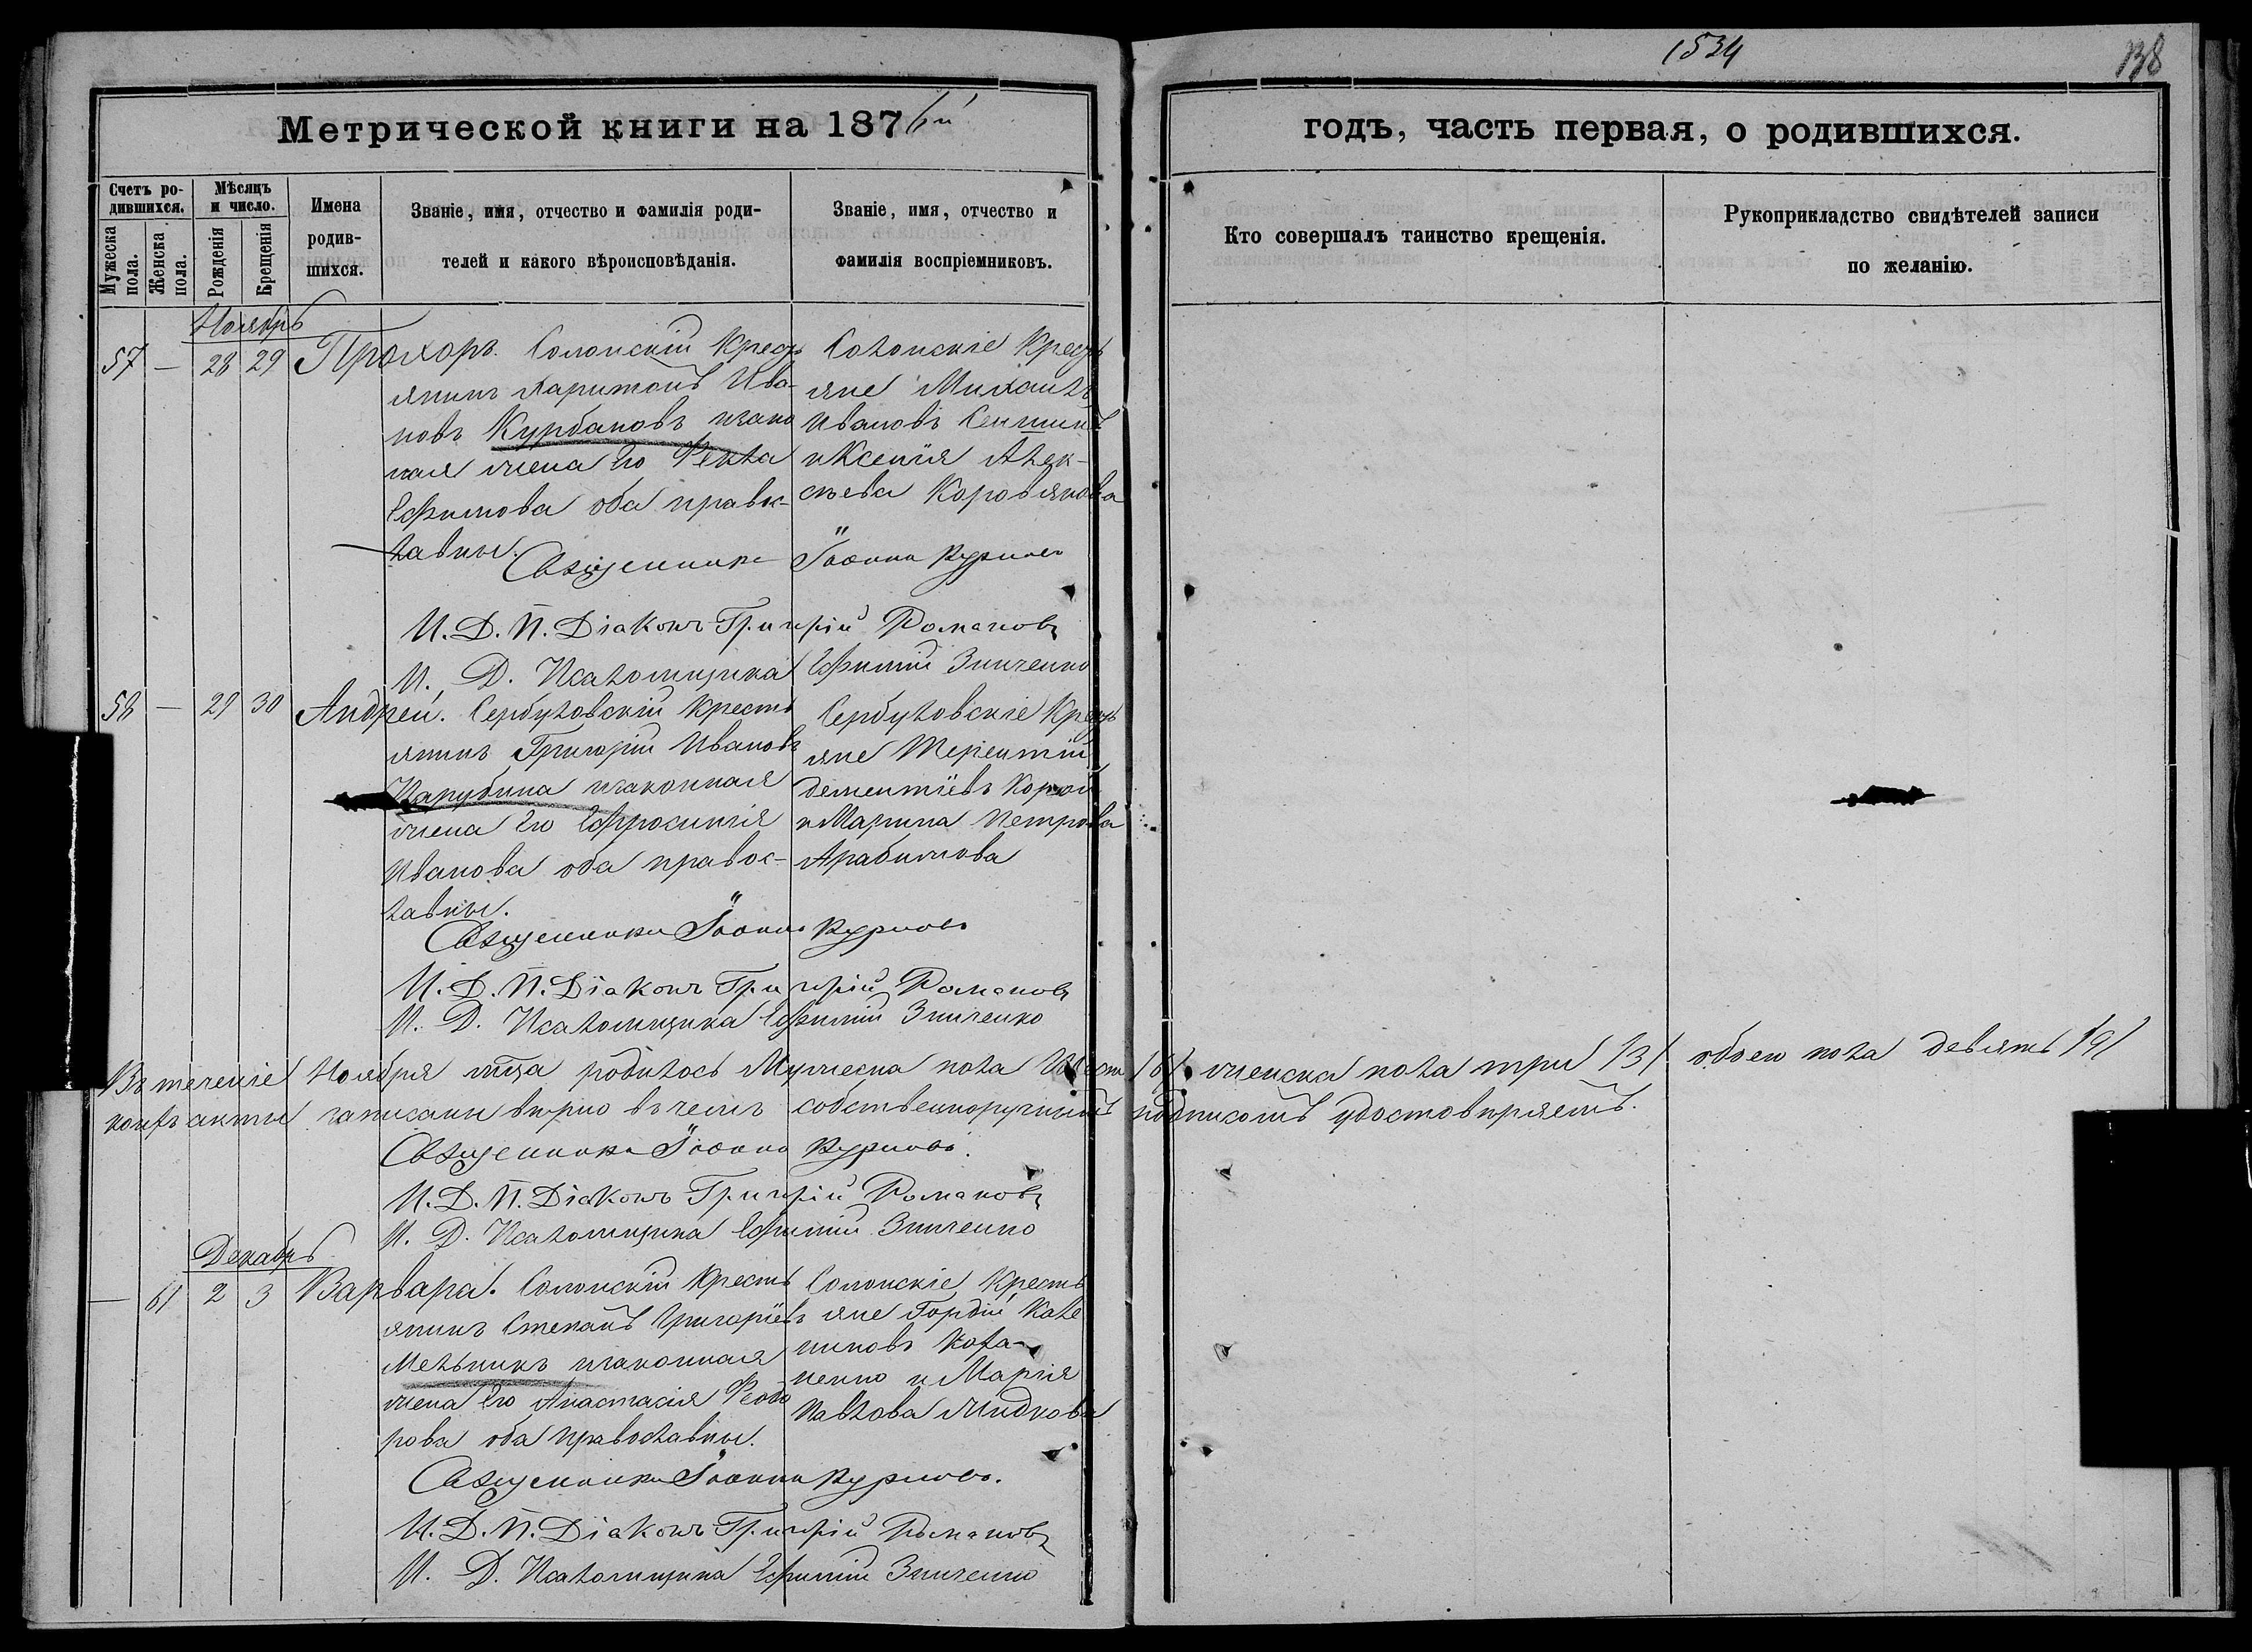 1534
138
Метрической книги на 1876й
годъ, часть первая, о родившихся.
Счетъ родившихся.
Мѣсяцъ и число.
Мужеска пола.
Женска пола.
Рожденія
Крещенія
Имена родившихся.
Званіе, имя, отчество и фамилія родителей и какого вѣроисповѣданія.
Званіе, имя, отчество и фамилія воспріемниковъ.
Кто совершалъ таинство крещенія.
Рукоприкладство свидѣтелей записи по желанію.
Ноябрь
57 — 28 29 Прохоръ.
Солонскій Кресть
янинъ Харитонъ Ива-
новъ Курбановъ изакон
ная жена его Фекла
Ефимова оба правос-
лавны.
Солонскіе Кресть
яне Михаилъ
Ивановъ
и Ксенія Алек-
сѣева Коровякова
Священникъ Іоаннъ Куриловъ
И. Д. П. Діаконъ Григорій Романовъ
И. Д. Псаломщика Ефимій Зинченко
58 — 29 30 Андрей.
Сербуловскій Кресть
янинъ Григорій Ивановъ
Чарубина изаконная
жена его Ефросинія
Иванова оба правос-
лавны.
Сербуловскіе Кресть
яне Терентій
Дементіевъ
и Марина Петрова
Арабижова
Священникъ Іоаннъ Куриловъ
И. Д. П. Діаконъ Григорій Романовъ
И. Д. Псаломщика Ефимій Зинченко
Въ теченіе Ноября мца родилось Мужеска пола шесть /6/ женска пола три /3/ обоего пола девять /9/
акты записаны вѣрно въ чемъ собственоручнымъ подписомъ удостовѣряемъ.
Священникъ Іоаннъ Куриловъ.
И. Д. П. Діаконъ Григорій Романовъ
И. Д. Псаломщика Ефимій Зинченко
Декабрь
— 61 2 3 Варвара.
Солонскій Кресть
янинъ Степанъ Григоріевъ
Мельникъ изаконная
жена его Анастасія Ѳеодо
рова оба православны.
Солонскіе Кресть
яне Гордій Кале
никовъ
ненко и Марія
Павлова Жидкова
Священникъ Іоаннъ Куриловъ.
И. Д. П. Діаконъ Григорій Романовъ
И. Д. Псаломщика Ефимій Зинченко